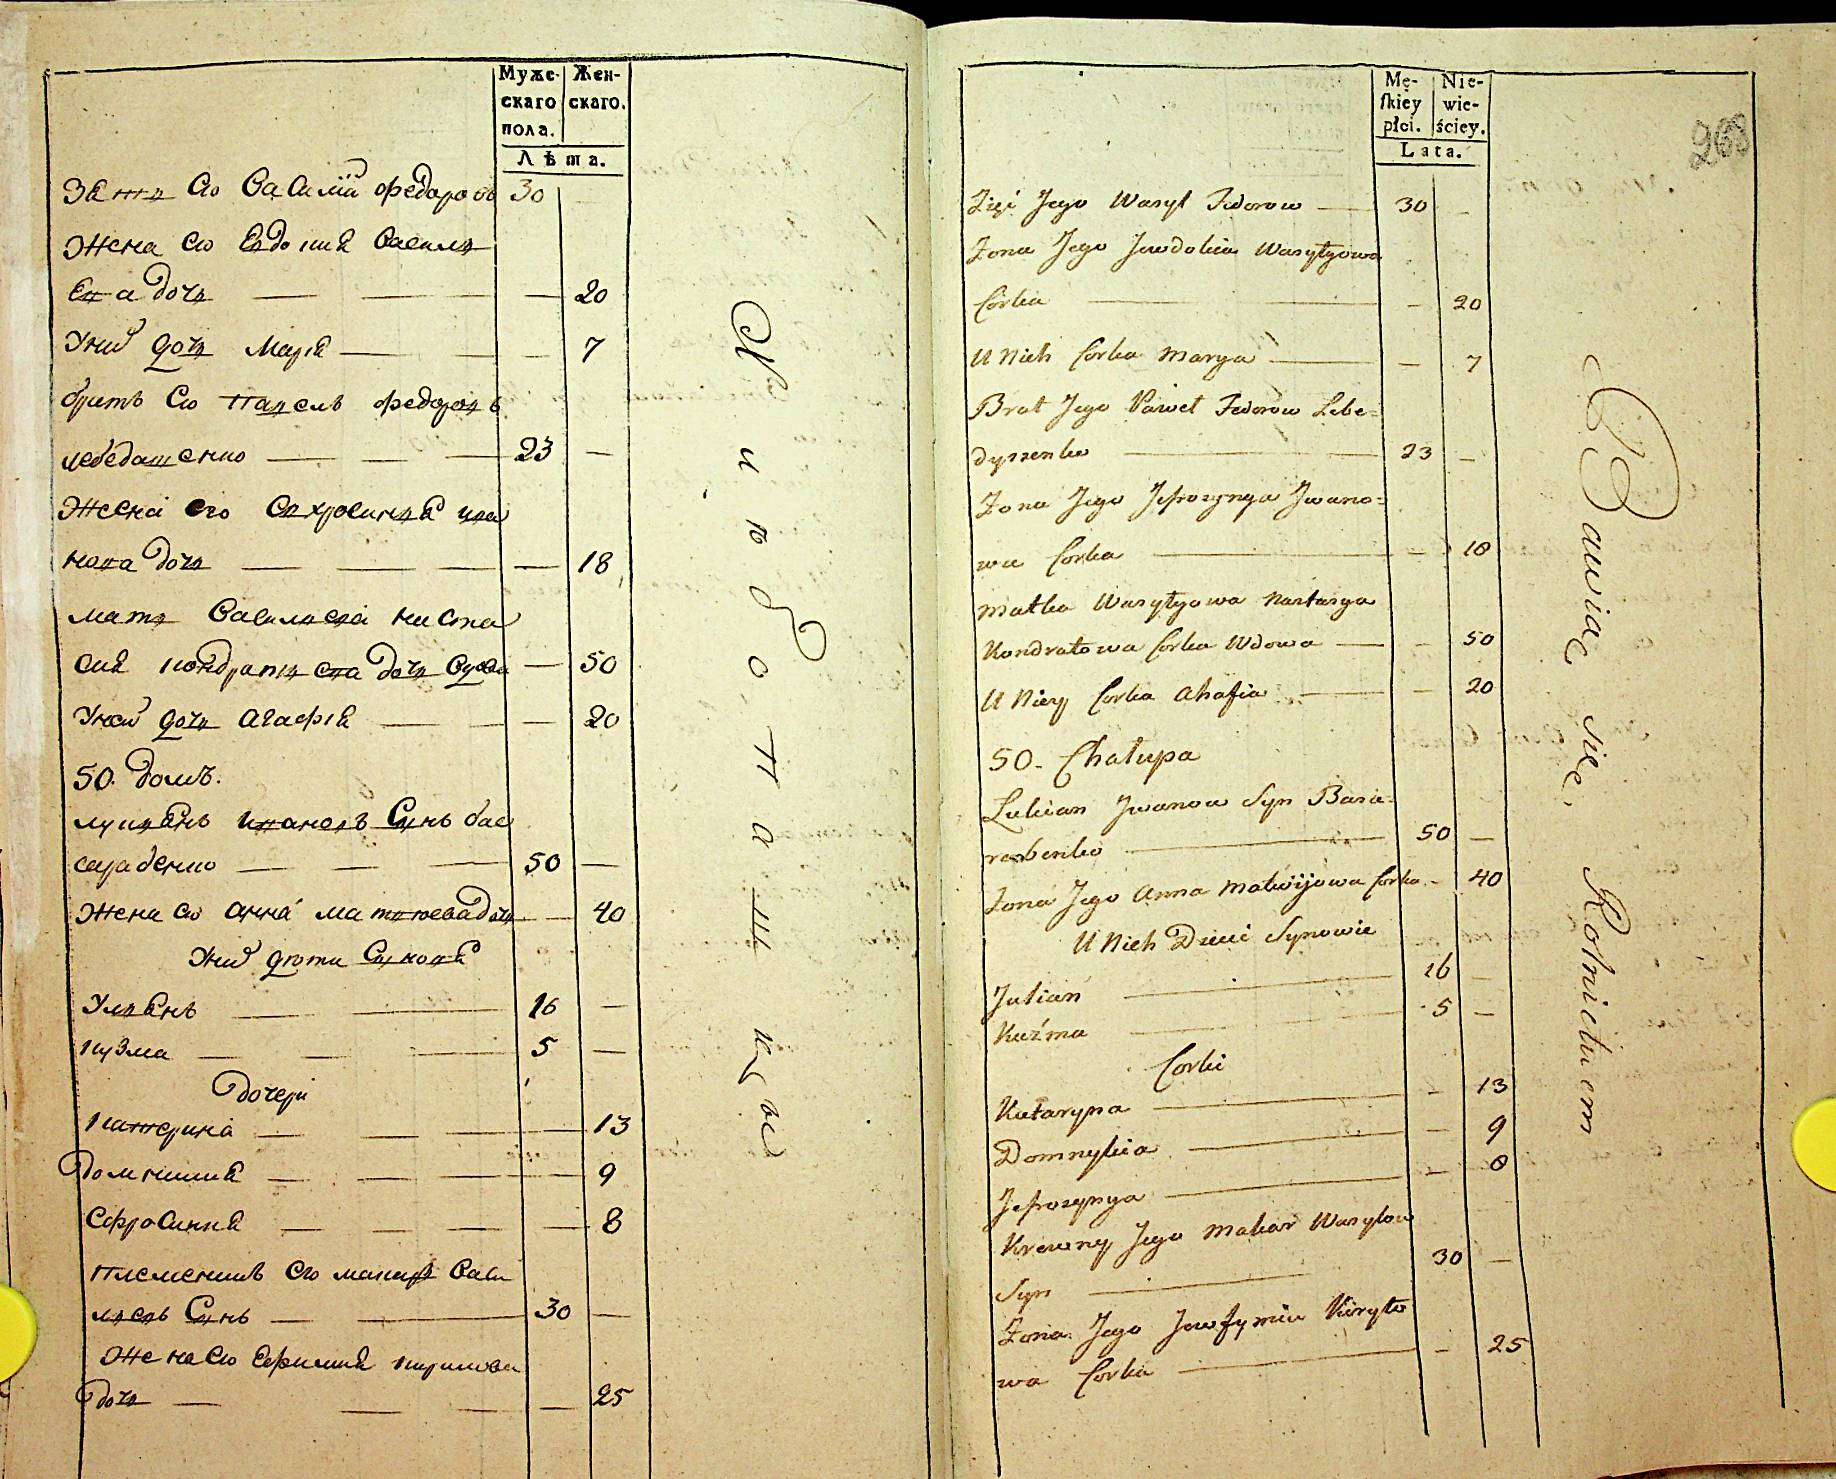 Муже-
скаго
пола.
Жен-
скаго.
Лѣта.
Зять его Василій Федоровъ 30 —
Жена его Евдокия Василь
ева дочь — — — 20
У них дочь Марія — — — 7
братъ его Павелъ Федоровъ
лебедашенко — — — 23 —
Жена его Евхросиния ива
нова дочь — — — 18
мать Васильева наста
сия кондратьева дочь вдова — 50
У ней дочь агафія — — 20
50. домъ.
лукьянъ ивановъ Сынъ бас
сарабенко — — — 50 —
Жена его анна матвеева дочь — 40
У них дѣти Сыновя
Ульянъ — — — 16 —
кузма — — — 5 —
дочери
катерина — — — 13
домникия — — — 9
Ефросиния — — — 8
племеникъ его макаръ Васи
льевъ Сынъ — — 30 —
Жена его Ефимия кирилова
дочь — — — 25
Хлѣбопашцы
Mę-
skiey
płci.
Nie-
wie-
ściey.
Lata.
268
Zięć Jego Wasyl Fedorow — 30 —
Żona Jego Jewdokia Wasylyowa
Corka — — 20
U Nich Corka Marya — — 7
Brat Jego Paweł Fedorow Lebe=
dyszenko — 23 —
Żona Jego Jefrozynya Jwano=
wa Corka — — 18
Matka Wasylyowa Nastasya
Kondratowa Corka Wdowa — — 50
U Niey Corka Ahafia — — 20
50. Chałupa
Lukian Jwanow Syn Basa-
rabenko — 50 —
Żona Jego Anna Matwijowa Corka — 40
U Nich Dzieci Synowie
Julian — 16 —
Kuźma — 5 —
Corki
Kataryna — — 13
Domnykia — — 9
Jefrozynya — — 8
Krewny Jego Makar Wasylow
Syn — 30 —
Żona Jego Jewfymia Kiryło
wa Corka — — 25
Bawiąc się Rolnictwem